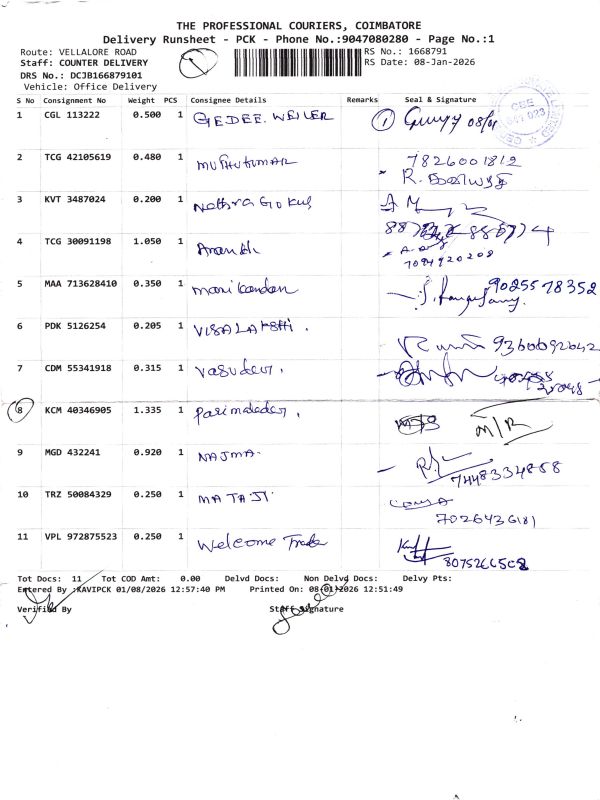 THE PROFESSIONAL COURIERS, COIMBATORE
Delivery Runsheet - PCK - Phone No.:9047080280 - Page No.:1
Route: VELLALORE ROAD
RS No.: 1668791
Staff: COUNTER DELIVERY
RS Date: 08-Jan-2026
DRS No.: DCJB166879101
Vehicle: Office Delivery
S No Consignment No Weight PCS Consignee Details Remarks Seal & Signature
1 CGL 113222 0.500 1 GEDEE. WEILER 1
2 TCG 42105619 0.480 1 muthukumar 7826001812
R.
3 KVT 3487024 0.200 1 Nethra Gokul
4 TCG 30091198 1.050 1
7094920208
5 MAA 713628410 0.350 1 manikandan 9025578352
6 PDK 5126254 0.205 1 VISALAKSHI. 9360692042
7 CDM 55341918 0.315 1 vasudevr.
8 KCM 40346905 1.335 1 M/R
9 MGD 432241 0.920 1 NAJMA.
7448334858
10 TRZ 50084329 0.250 1 MATAJI.
7026436181
11 VPL 972875523 0.250 1 Welcome
Tot Docs: 11 Tot COD Amt: 0.00 Delvd Docs: Non Delvd Docs: Delvy Pts:
Entered By :KAVIPCK 01/08/2026 12:57:40 PM Printed On: 08-01-2026 12:51:49
Verified By Staff Signature